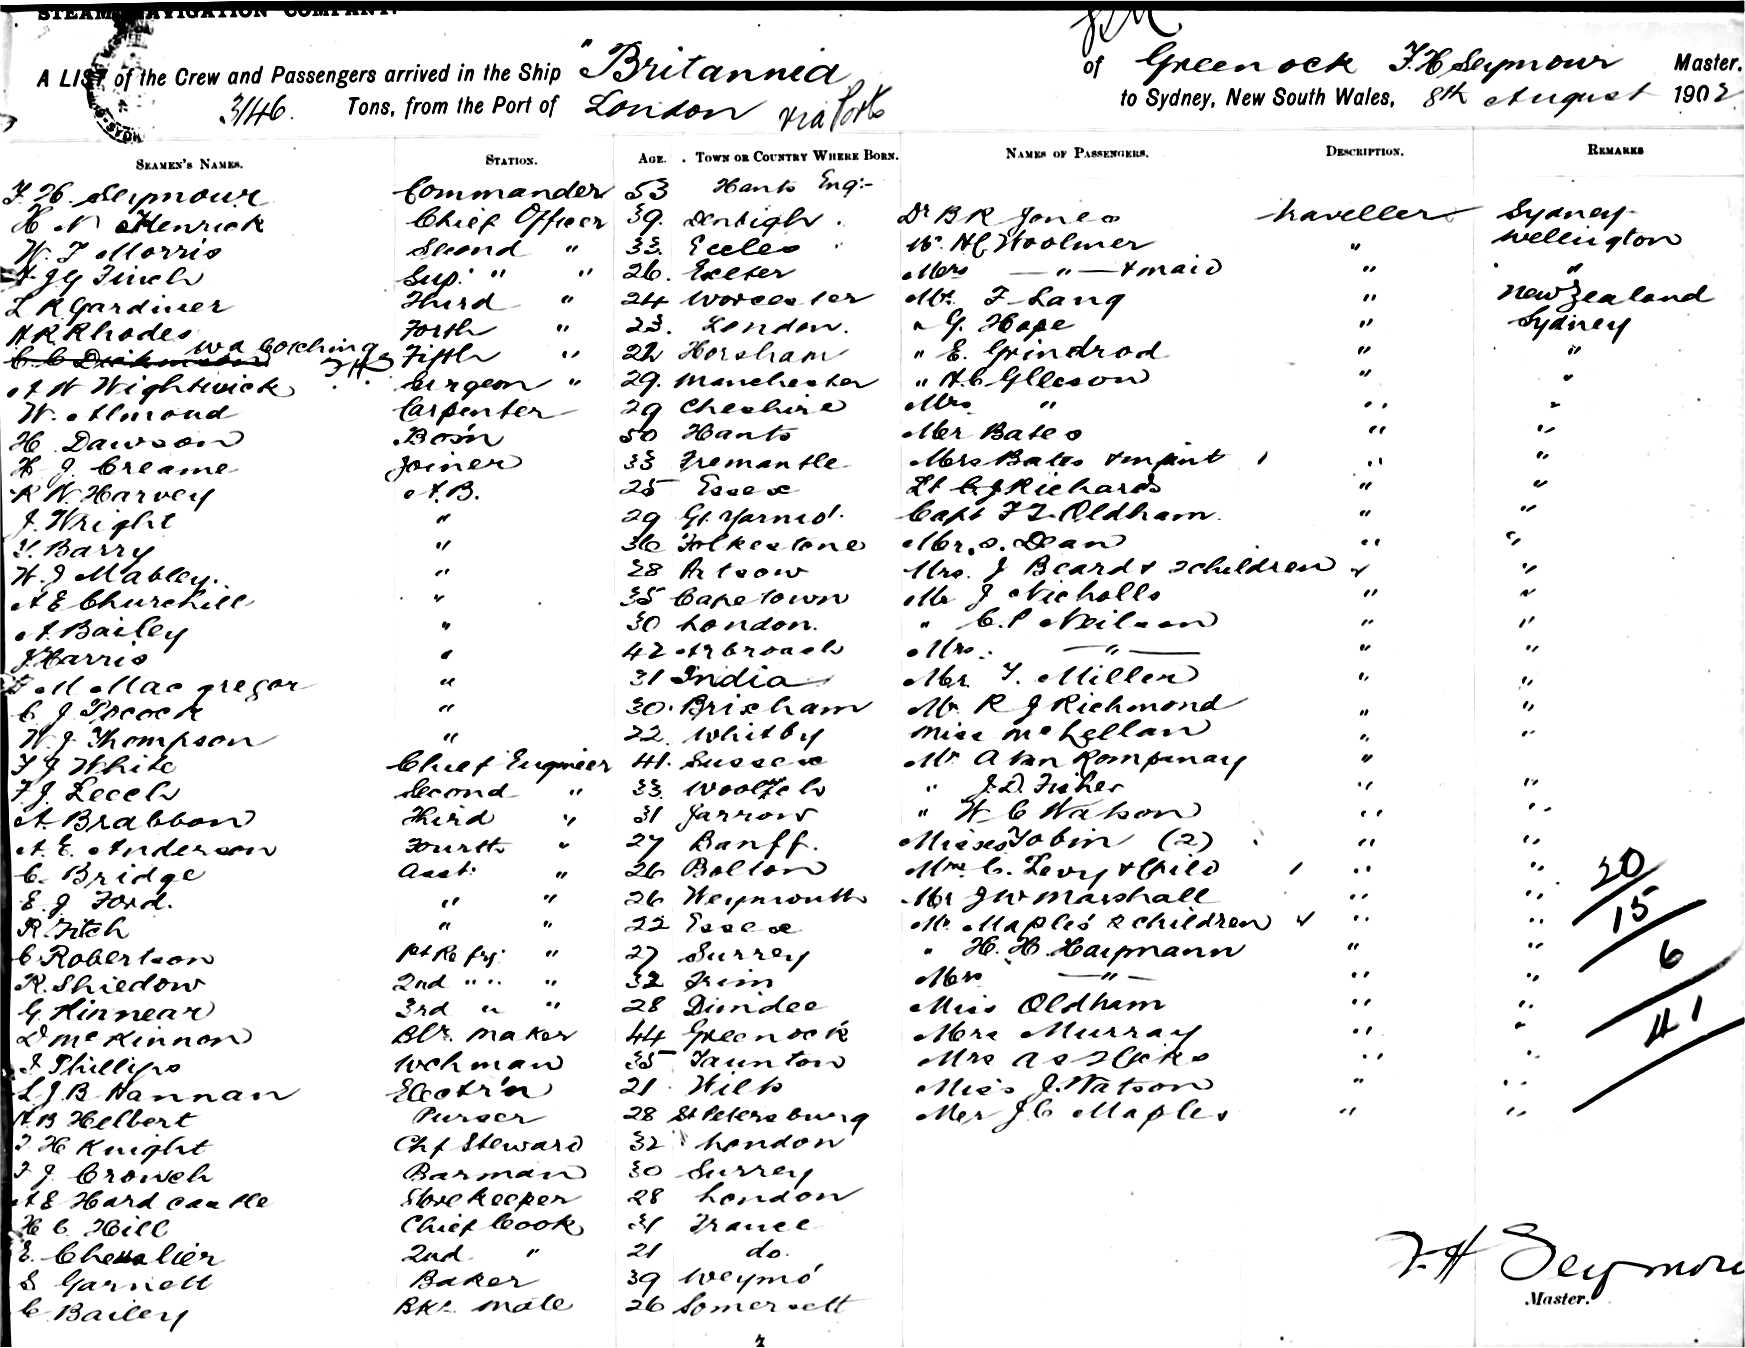 STEAM NAVIGATION COMPANY.
A LIST of the Crew and Passengers arrived in the Ship "Britannia of Greenock F. H. Seymour Master.
3146. Tons, from the Port of London via Ports to Sydney, New South Wales, 8th August 1902
SEAMEN'S NAMES. STATION. AGE. TOWN OR COUNTRY WHERE BORN. NAMES OF PASSENGERS. DESCRIPTION. REMARKS
F. H. Seymour Commander 53 Hants Eng:-
H N Henrick Chief Officer 39. Denbigh. Dr B R Jones traveller Sydney
W. T Morris Second " 33. Eccles " Mr. H C Woolmer " Wellington
Finch Sup: " " 26. Exeter Mrs — " — & maid " "
L R Gardiner Third " 24 Worcester Mr. F Lang " New Zealand
H R Rhodes Forth " 23. London. " G. Hope " Sydney
Fifth " 22 Horsham " E. Grindrod " "
A W Wightwick Surgeon " 29. Manchester " H C Glleson " "
W. Almond Carpenter 29 Cheshire Mrs " " "
H Dawson Bos'n 50 Hants Mr Bates " "
H J. Creame Joiner 33 Fremantle Mrs Bates & infant 1 " "
R W. Harvey A.B. 25 Essex Lt C J Richards " "
J. Wright " 29 Gt. Yarmo'. Capt F T Oldham. " "
T. Barry " 36 Folkestone Mr. S. Dean " "
W. J Mabley. " 28 Mrs. J Beard & 2 children " "
A E Churchill " 35 Cape town Mr J Nicholls " "
A. Bailey " 30 London. " C. P Neilson " "
J Harris " 42 Arbroath Mrs. — " — " "
M Macgregor " 31 India Mr T. Miller " "
C J Pocock " 30. Brixham Mr R J Richmond " "
W. J. Thompson " 22. Whitby Miss McLellan " "
F J White Chief Engineer 41. Sussex Mr A Van Rompenay "
F. J. Leech Second " 33. Woolwich " J. D. Fisher " "
A. Brabbon Third " 31 Jarrow " W C Watson " "
A. E. Anderson Fourth " 27 Banff. Misses Tobin (2) " "
C. Bridge Asst. " 26 Bolton Mrs C. Levy & Child 1 " " 20
E. J Ford. " " 26 Weymouth Mr J W Marshall " " 15
R. Fitch " " 22 Essex Mr. Maples 2 children " "
C Robertson Refrg: " 27 Surrey " H. H. Haypmann " " 6
R. Shiedow 2nd " " " 32 Trim Mrs — " — " "
G. Kinnear 3rd " " 28 Dundee Miss Oldham " " 41
D McKinnon Blr. Maker 44 Greenock Mrs Murray " "
Phillips Wchman 35 Taunton Mrs A S Hicks " "
L J. B. Hannan Electr'n 21. Wilts Miss J. Watson " "
H. B Helbert Purser 28 St Petersburg Mr J C Maples " "
H Knight Chf Steward 32 London
F J. Crouch Barman 30 Surrey
A E Hardcastle Storekeeper 28 London
H C. Hill Chief Cook 31 France
E. Chevalier 2nd " 21 do.
S Garnett Baker 39 Weymo'
C Bailey Bkr. Mate 26 Somersett
F. H Seymour
Master.